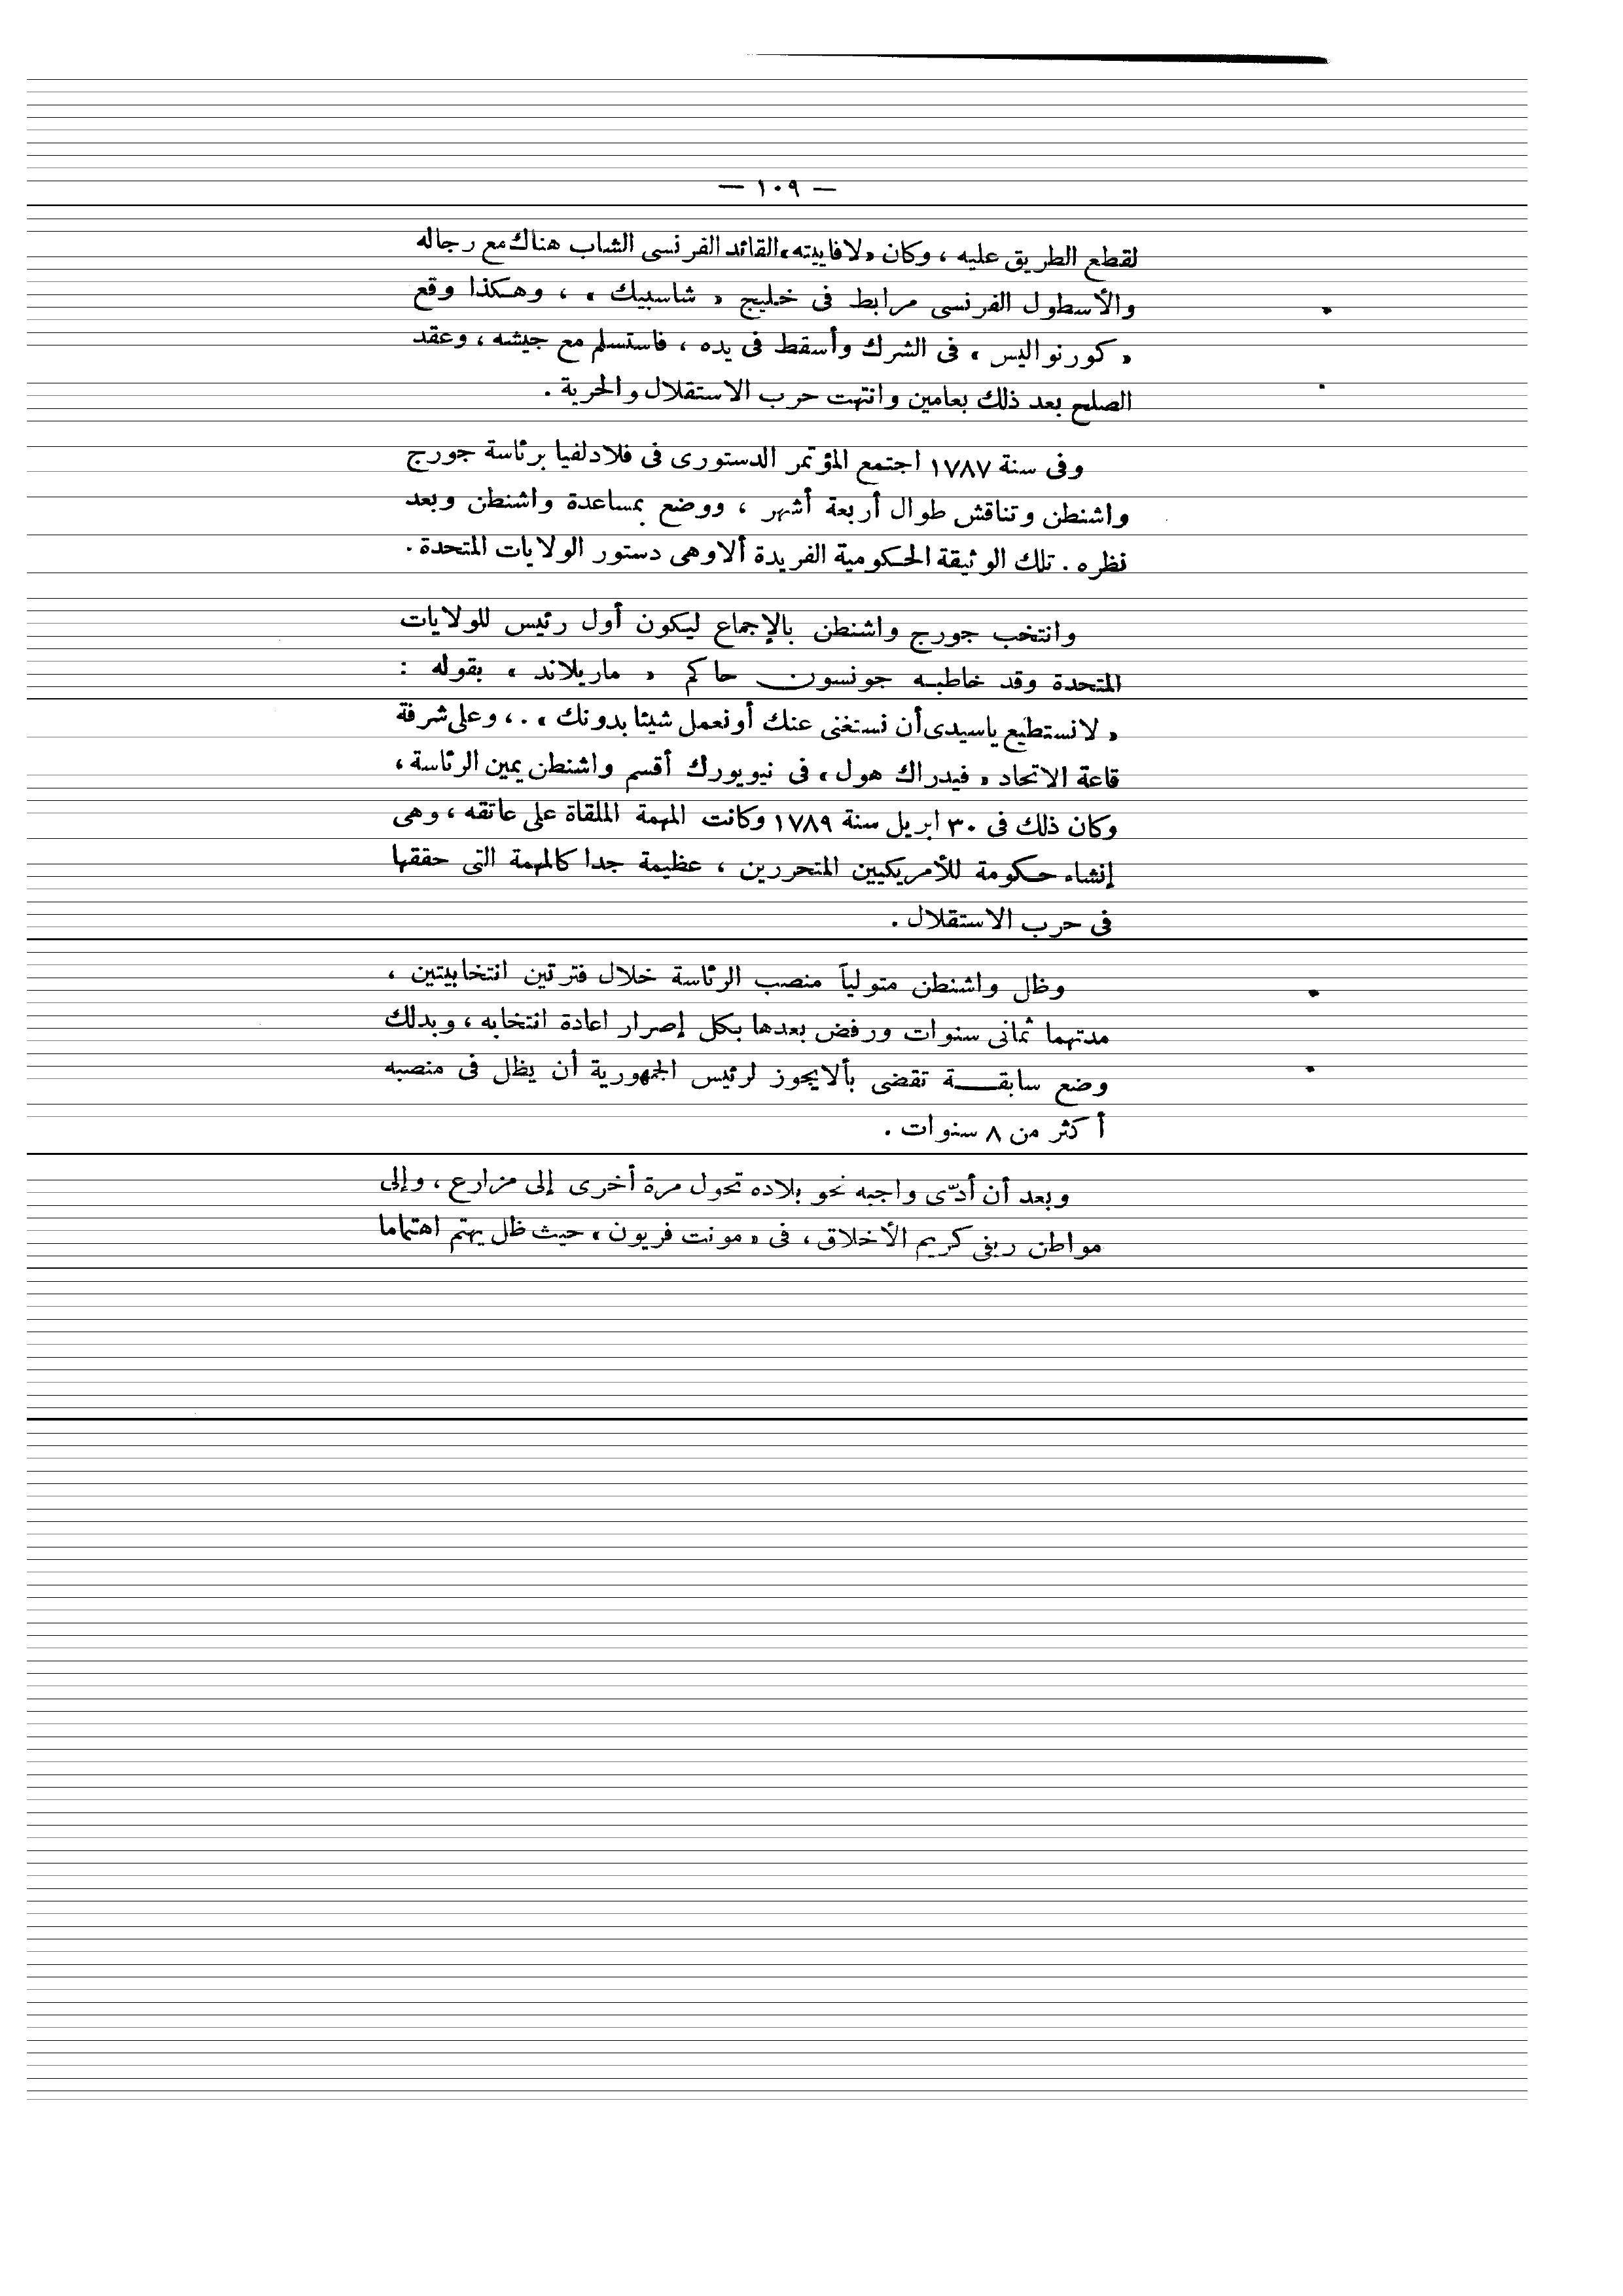 — ١٠٩ —
لقطع الطريق عليه ، وكان «لافاييته» القائد الفرنسى الشاب هناك مع رجاله
والأسطول الفرنسى مرابط فى خليج « شاسبيك » ، وهكذا وقع
« كورنواليس » فى الشرك وأسقط فى يده ، فاستسلم مع جيشه ، وعقد
الصلح بعد ذلك بعامين وانتهت حرب الاستقلال والحرية .
وفى سنة ١٧٨٧ اجتمع المؤتمر الدستورى فى فلادلفيا برئاسة جورج
واشنطن وتناقش طوال أربعة أشهر ، ووضع بمساعدة واشنطن وبعد
نظره . تلك الوثيقة الحكومية الفريدة ألا وهى دستور الولايات المتحدة .
وانتخب جورج واشنطن بالإجماع ليكون أول رئيس للولايات
المتحدة وقد خاطبه جونسون حاكم « ماريلاند » بقوله :
« لا نستطيع ياسيدى أن نستغنى عنك أو نعمل شيئا بدونك » . ، وعلى شرفة
قاعة الاتحاد « فيدراك هول » فى نيويورك أقسم واشنطن يمين الرئاسة ،
وكان ذلك فى ٣٠ ابريل سنة ١٧٨٩ وكانت المهمة الملقاة على عاتقه ، وهى
إنشاء حكومة للأمريكيين المتحررين ، عظيمة جدا كالمهمة التى حققها
فى حرب الاستقلال .
وظل واشنطن متولياً منصب الرئاسة خلال فترتين انتخابيتين ،
مدتهما ثمانى سنوات ورفض بعدها بكل إصرار اعادة انتخابه ، وبدلك
وضع سابقـــة تقضى بألا يجوز لرئيس الجمهورية أن يظل فى منصبه
أكثر من ٨ سنوات .
وبعد أن أدّى واجبه نحو بلاده تحول مرة أخرى إلى مزارع ، وإلى
مواطن ريفى كريم الأخلاق ، فى « مونت فريون » حيث ظل يهتم اهتماما